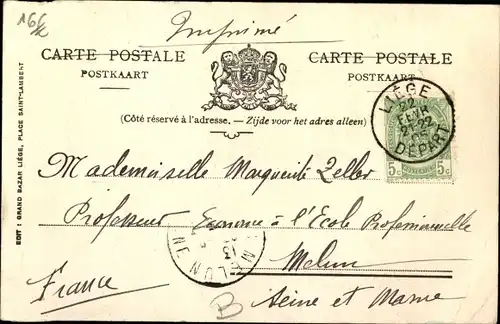 166
Imprimé
CARTE POSTALE
POSTKAART
CARTE POSTALE
POSTKAART
(Côté réservé à l'adresse. — Zijde voor het adres alleen)
LIÉGE
22
FEVR
21-22
05
DÉPART
5c 5c
Mademoiselle Marguerite Zeller
Professeur Econome à l'Ecole Professionnelle
Melun
Seine et Marne
France
MELUN
B
EDIT: GRAND BAZAR LIÉGE, PLACE SAINT-LAMBERT